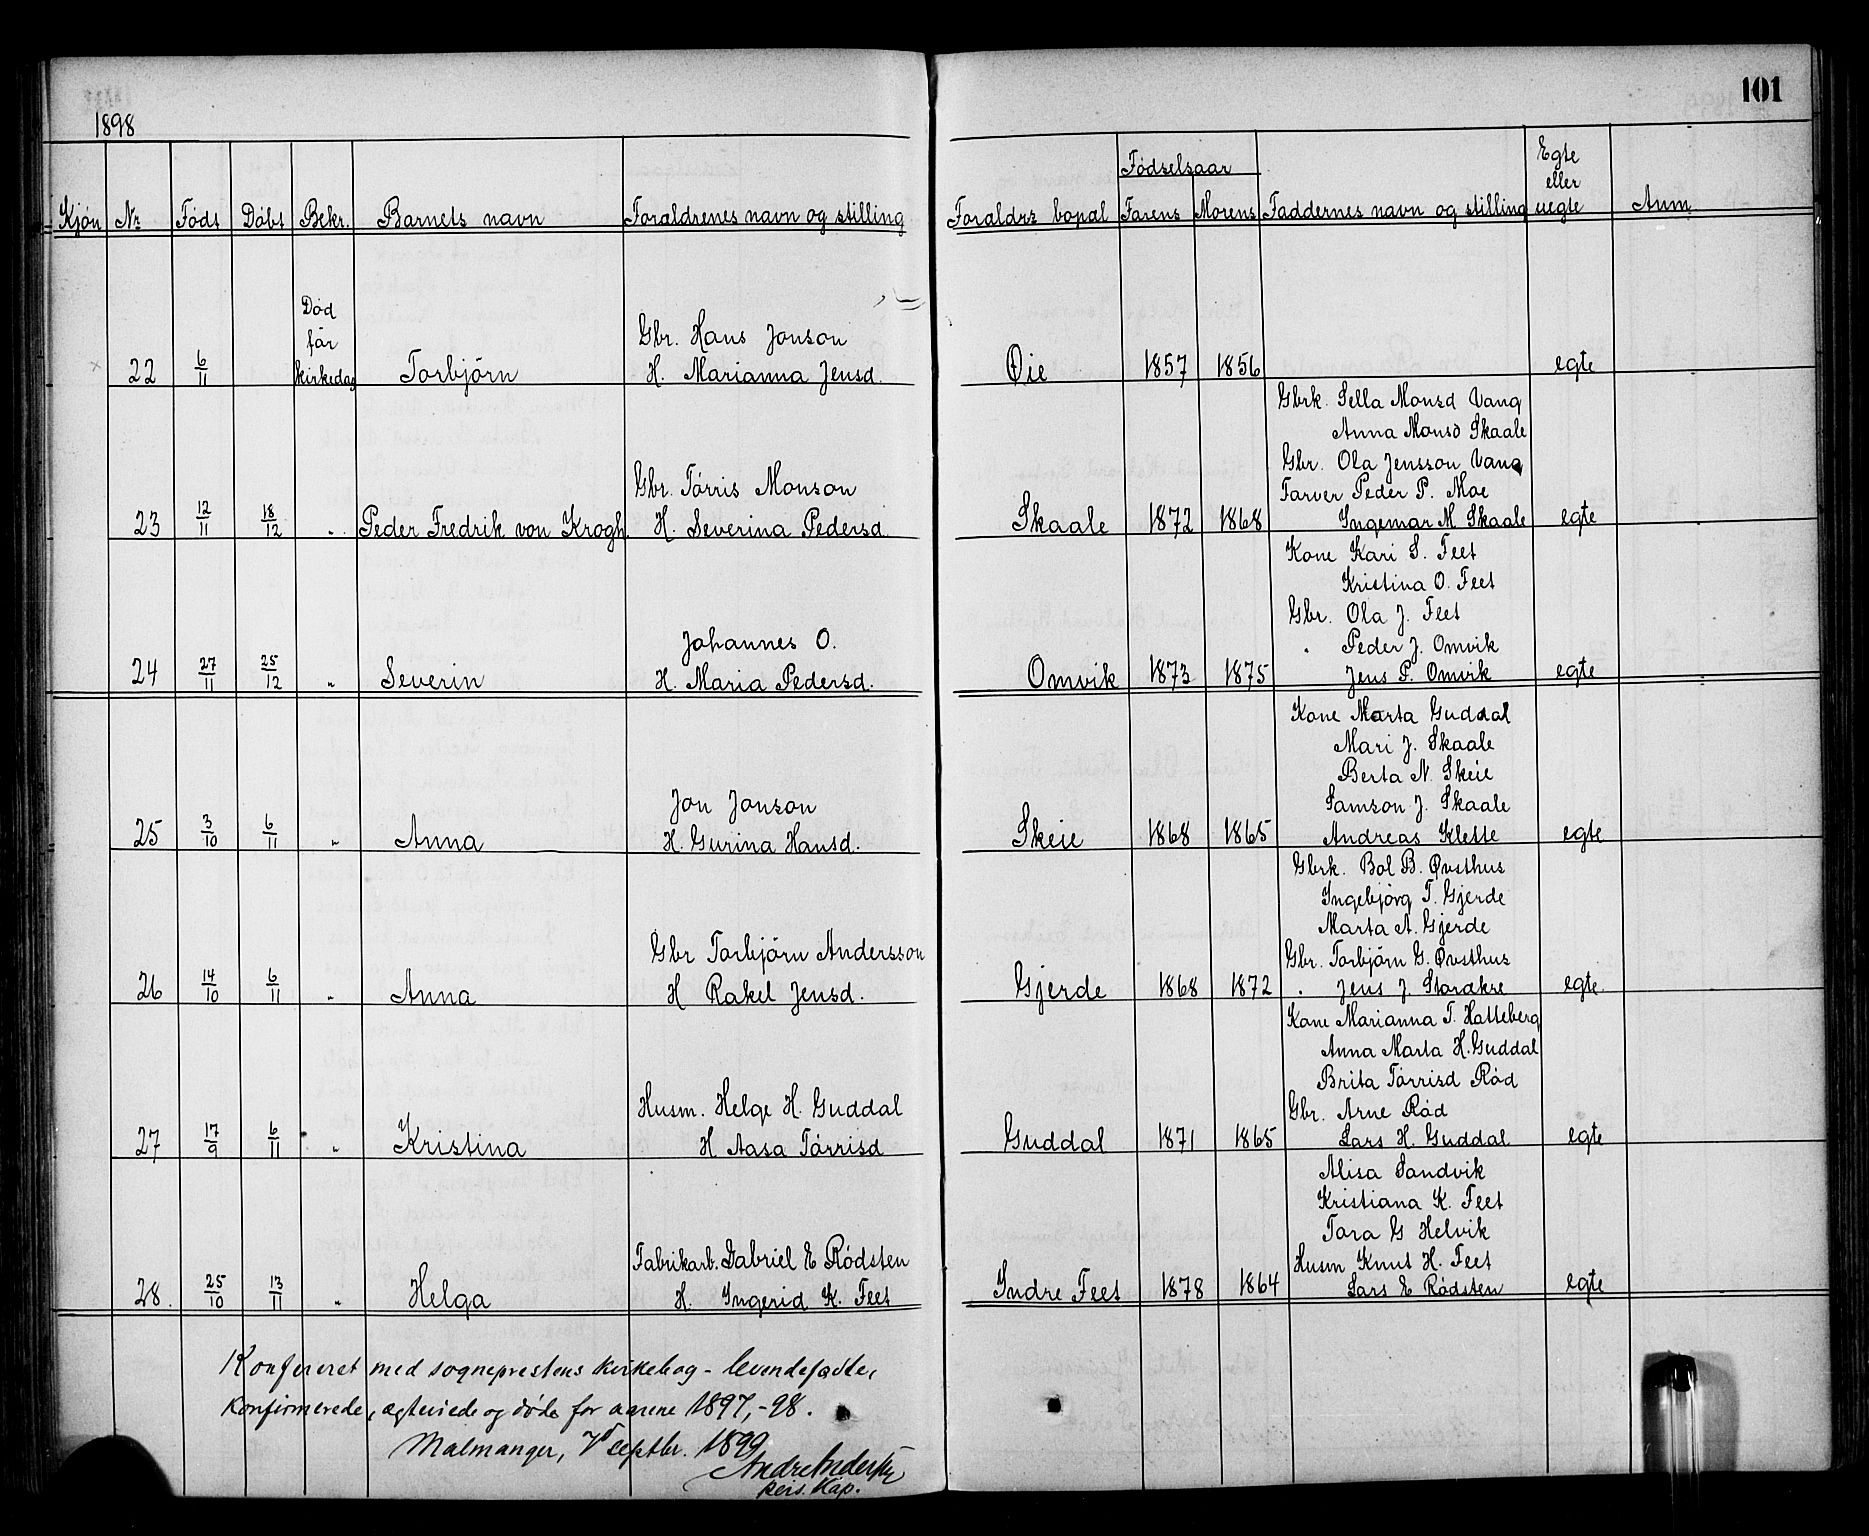 101
1898
Kjøn Nr Født Døbt Bekr. Barnets navn Foraldrenes navn og stilling Foraldrs bopal Fødselsaar Farens Morens Faddernes navn og stilling Egte eller uegte Anm
22 6/11 Død før kirkedag Torbjörn Gbr. Hans Jonson
H. Marianna Jensd. Øie 1857 1856 egte
Gbrk. Sella Monsd Vang
Anna Monsd Skaale
Gbr. Ola Jensson Vang
Gbr. Tørris Monson Farver Peder P. Moe
23 12/11 18/12 „ Peder Fredrik von Krogh. H. Severina Pedersd. Skaale 1872 1868 Ingemar M Skaale egte
Kone Kari S. Feet
Kristina O. Feet
Gbr. Ola J. Feet
Johannes O. " Peder J. Omvik
24 27/11 25/12 „ Severin H. Maria Pedersd. Omvik 1873 1875 Jens P. Omvik egte
Kone Marta Guddal
Mari J. Skaale
Berta N. Skeie
Jon Jonson Samson J. Skaale
25 3/10 6/11 „ Anna H. Gurina Hansd. Skeie 1868 1865 Andreas Klette egte
Gbrk. Bol B. Øvsthus
Ingebjörg T. Gjerde
Marta A. Gjerde
Gbr Torbjörn Andersson Gbr. Torbjörn G. Øvsthus
26 14/10 6/11 „ Anna H Rakel Jensd. Gjerde 1868 1872 " Jens J. Storakre egte.
Kone Marianna T. Hatteberg
Anna Marta H. Guddal
Brita Tørrisd Rød
Husm. Helge H. Guddal Gbr. Arne Rød
27 17/9 6/11 „ Kristina H Aasa Tørrisd Guddal 1871 1865 Lars H. Guddal egte
Alisa Sandvik
Kristiana K. Feet
Tora G Helvik
Fabrikarb. Gabriel E Rødsten Husm Knut H. Feet
28. 25/10 13/11 „ Helga H. Ingerid K. Feet Indre Feet 1878 1864 Lars E Rødsten egte
Konfereret med sogneprestens kirkebog - levendefødte,
konfirmerede, ægteviede og døde for aarene 1897,-98.
Malmanger, 7 septbr. 1899
pers. Kap.